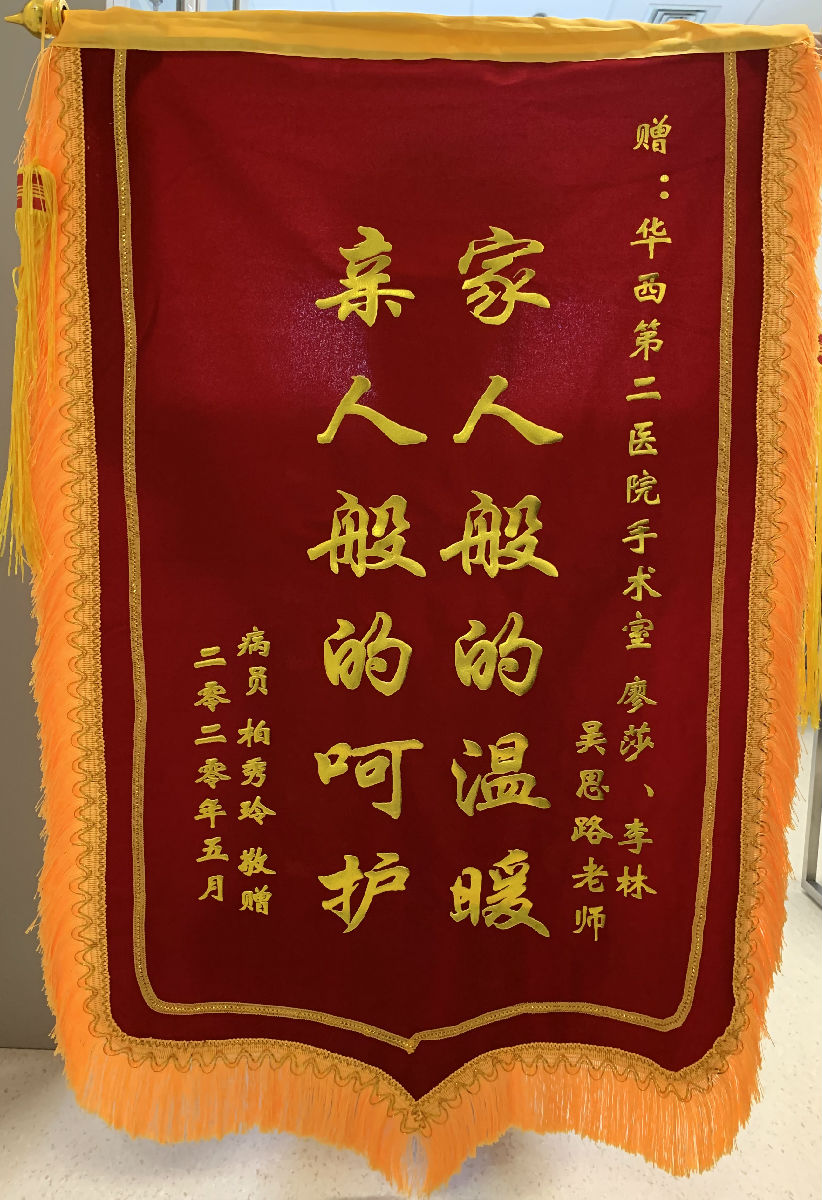 赠：华西第二医院手术室 廖莎、李林
吴思路老师
家人般的温暖
亲人般的呵护
病员 柏秀玲 敬赠
二零二零年五月